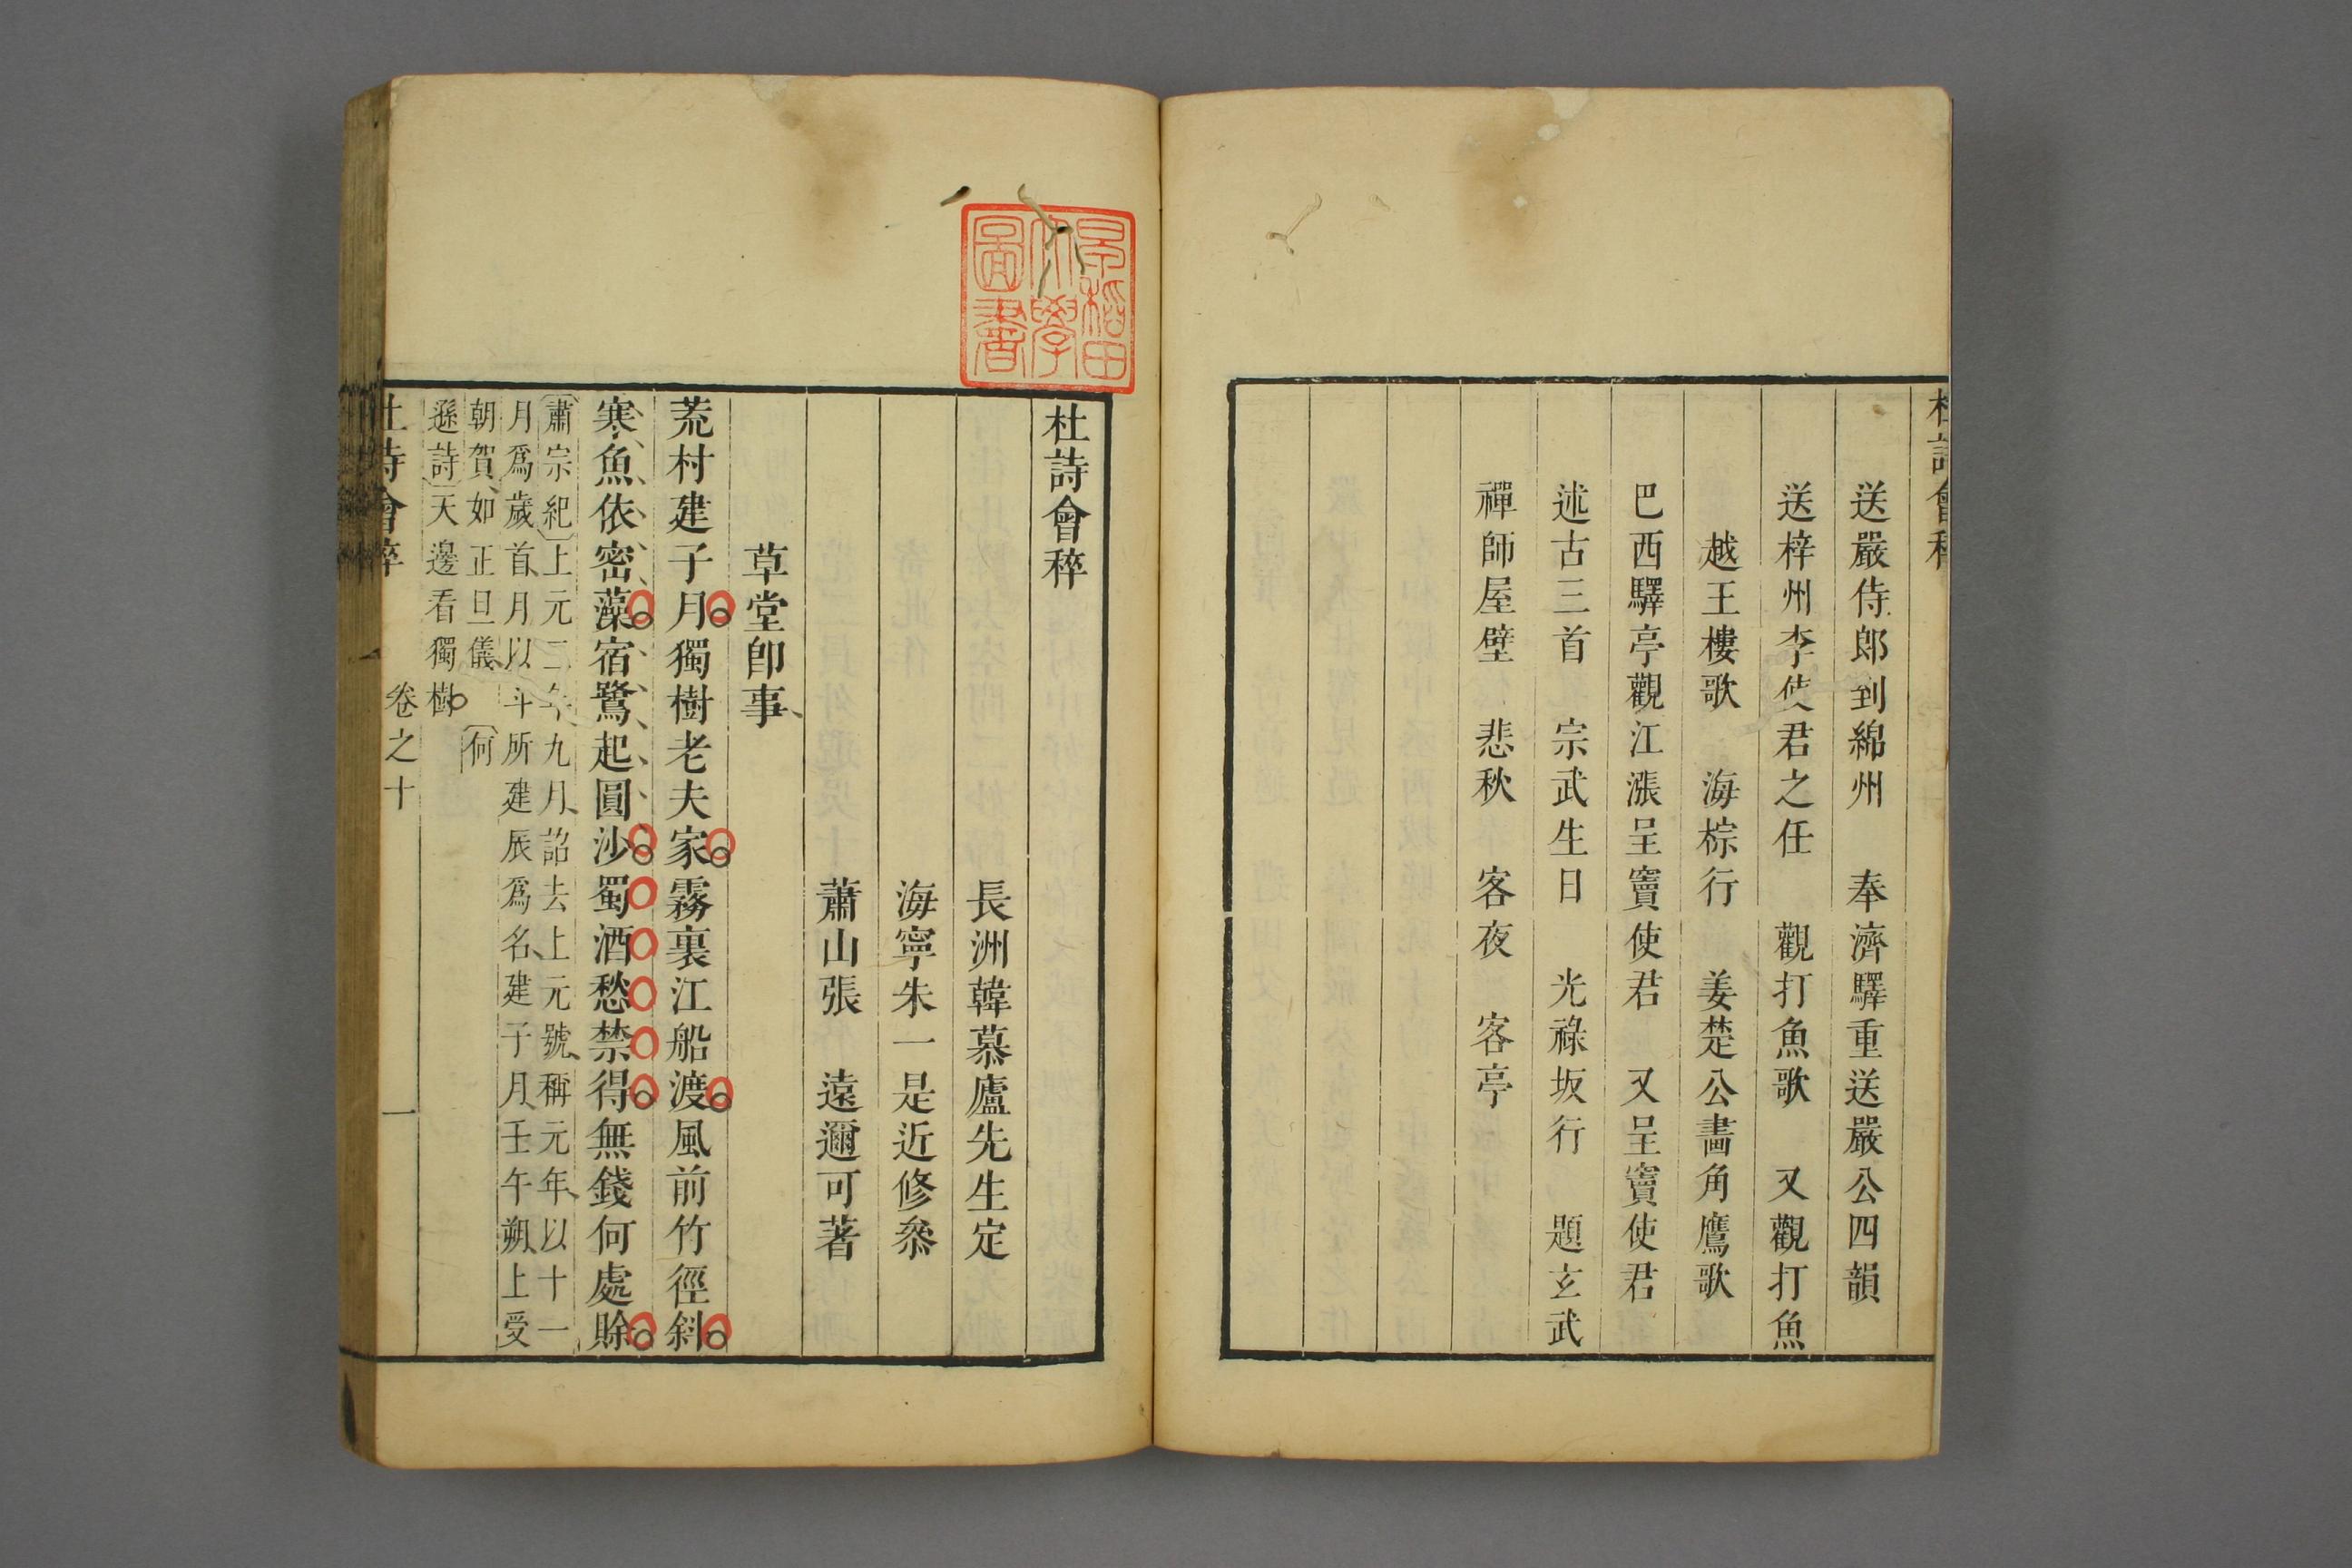 杜詩會稡
送嚴侍郎到綿州　奉濟驛重送嚴公四韻
送梓州李使君之任　觀打魚歌　又觀打魚
越王樓歌　海棕行　姜楚公畫角鷹歌
巴西驛亭觀江漲呈竇使君　又呈竇使君
述古三首　宗武生日　光祿坂行　題玄武
禪師屋壁　悲秋　客夜　客亭
早稻田
大學
圖書
杜詩會稡
長洲韓慕廬先生定
海寧朱一是近修叅
蕭山張　遠邇可著
草堂卽事
荒村建子月獨樹老夫家霧裏江船渡風前竹徑斜
寒魚依密藻宿鷺起圓沙蜀酒愁禁得無錢何處賒
肅宗紀上元二年九月詔去上元號稱元年以十一
月爲歲首月以斗所建辰爲名建子月壬午朔上受
朝賀如正旦儀　何
遜詩天邊看獨樹
杜詩會稡　卷之十　一